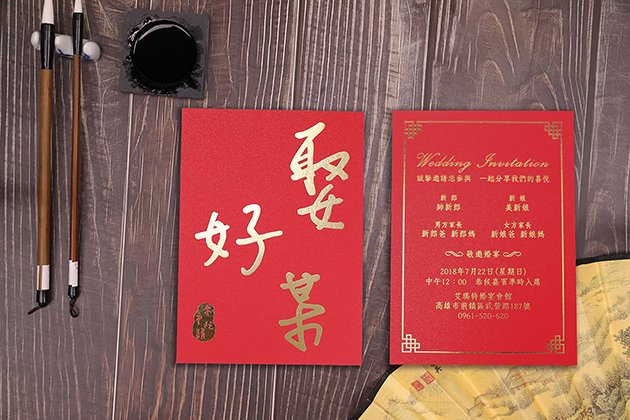 娶
好
某
Wedding Invitation
誠摯邀請您參與 一起分享我們的喜悅
新郎 新娘
帥新郎 美新娘
男方家長 女方家長
新郎爸 新郎媽 新娘爸 新娘媽
敬邀婚宴
2018年7月22日(星期日)
中午12：00 恭候嘉賓準時入席
艾瑪特婚宴會館
高雄市前鎮區武營路187號
0961-520-620